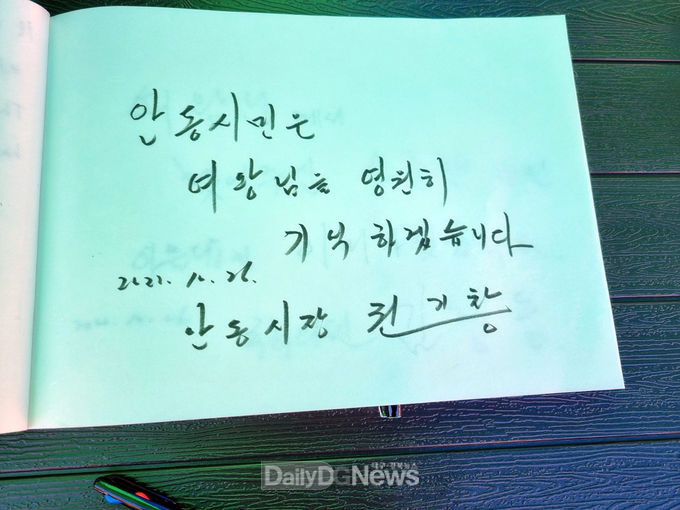 안동시민은
여왕님을 영원히
기억하겠습니다
안동시장 권기창
대구·경북뉴스
DailyDGNews